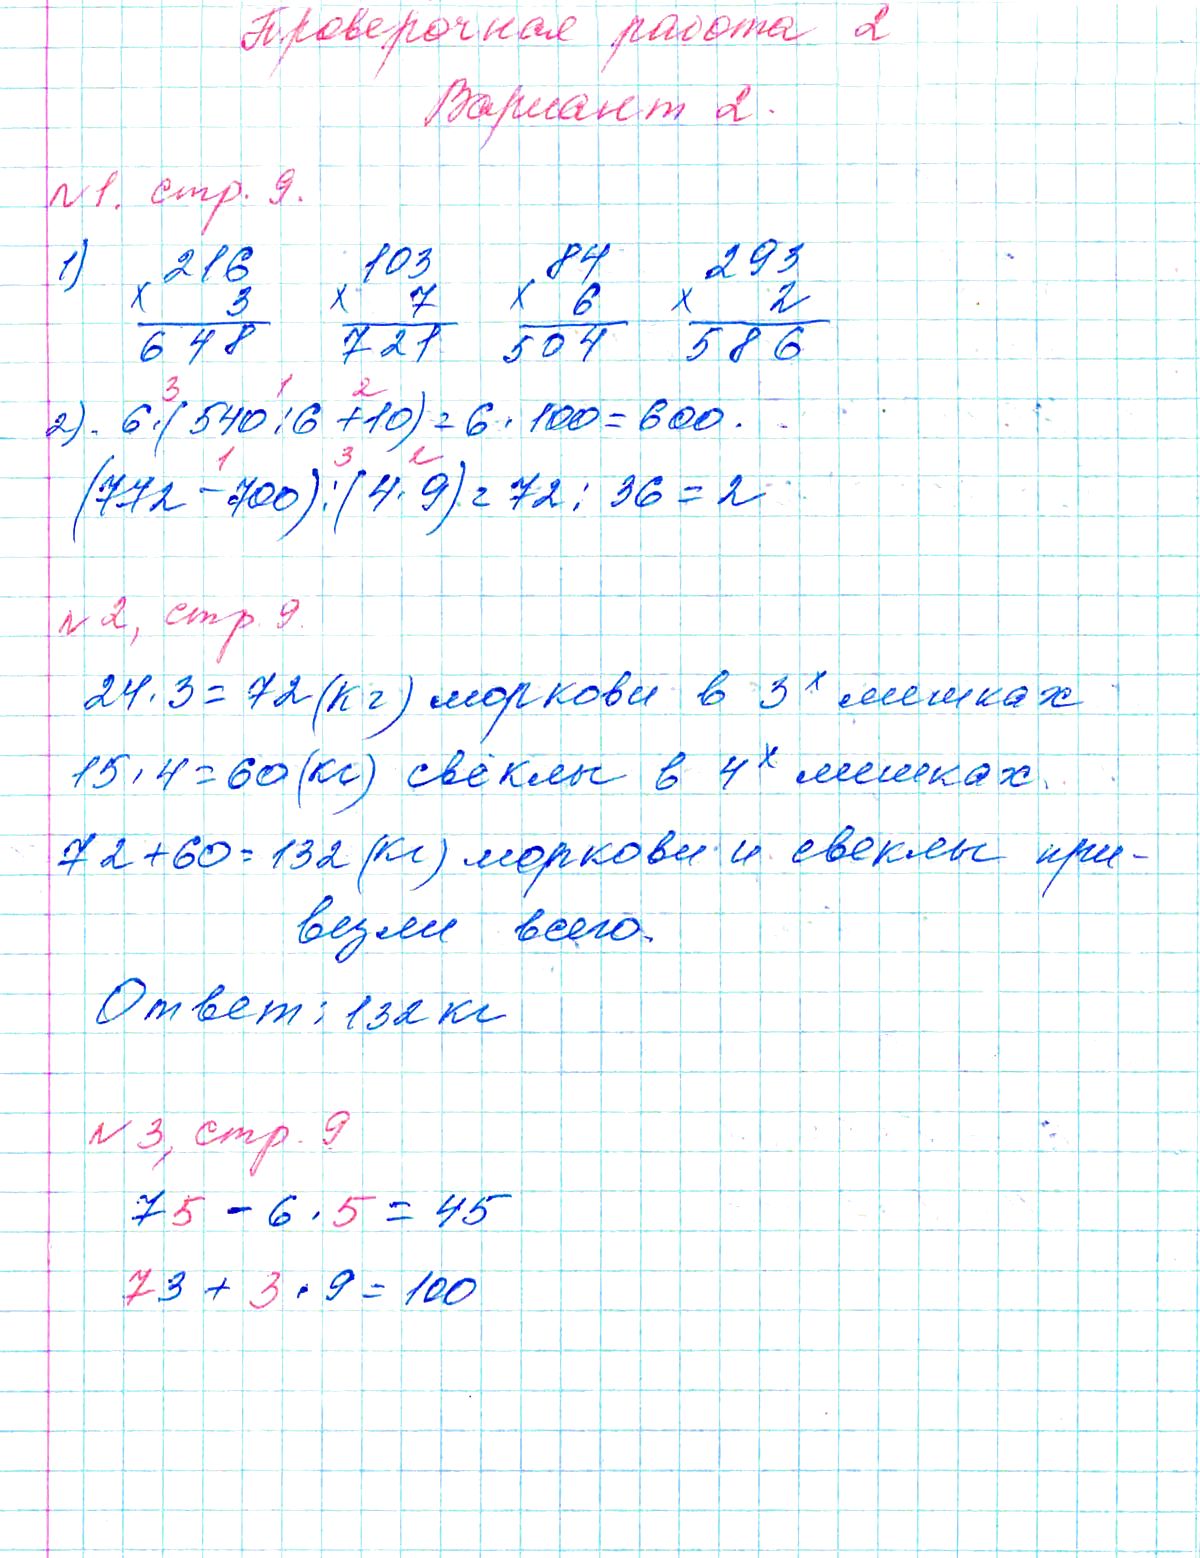 Проверочная работа 2
Вариант 2.
№1. стр. 9.
1) 216 103 84 293
× 3 × 7 × 6 × 2
648 721 504 586
3 1 2
2). 6·(540:6+10)=6·100=600.
1 3 2
(772-700):(4·9)=72:36=2
№2, стр. 9.
24·3=72(кг) моркови в 3х мешках
15·4=60(кг) свёклы в 4х мешках.
72+60=132(кг) моркови и свеклы при-
везли всего.
Ответ: 132 кг
№3, стр. 9
75-6·5=45
73+3·9=100